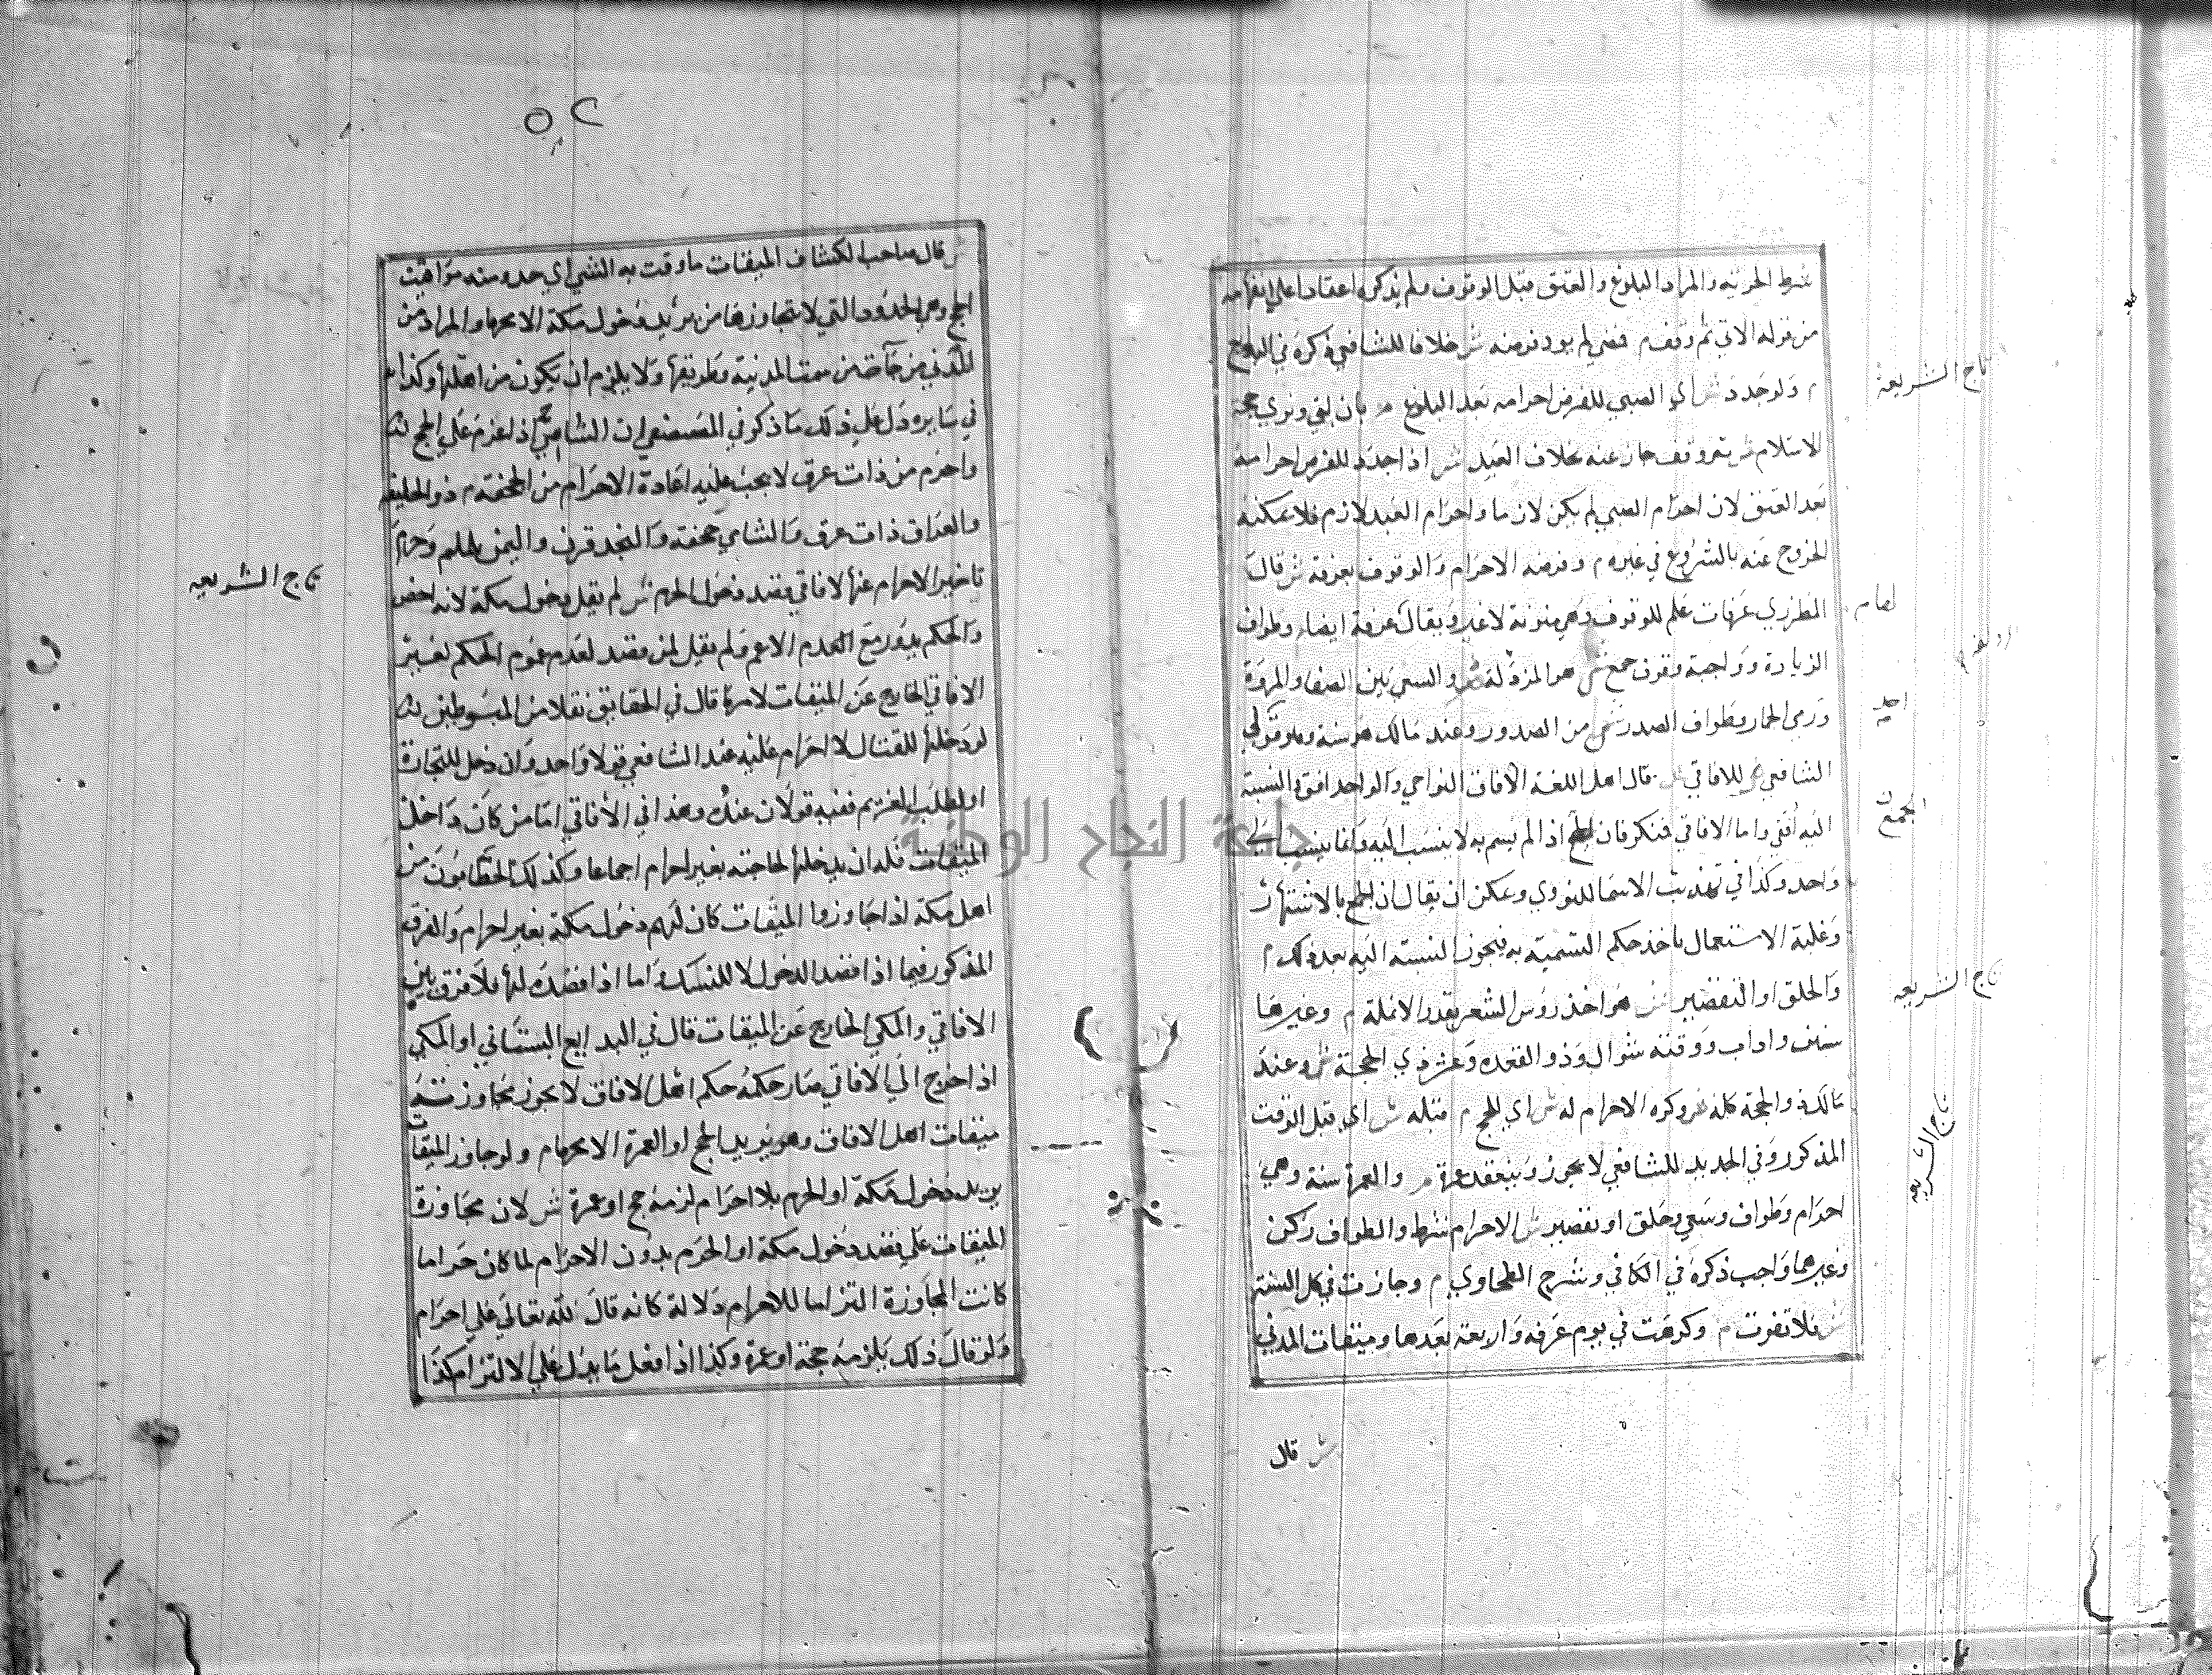 شرط الحرية والمراد البلوغ والعتق قبل الوقوف ولم يذكره اعتمادا على انفهامه
من قوله الاتي ثم وقف م فمضى لم يود فرضه ش خلافا للشافعي ذكره في
م ولو جدد ش اي الصبي للفرض احرامه بعد البلوغ م بان لبى ونوى حجة
الاسلام ش ثم وقف جاز عنه بخلاف العبد ش اذا جدد للفرض احرامه
بعد العتق لان احرام الصبي لم يكن لازما واحرام العبد لازم فلا يمكنه
الخروج عنه بالشروع في غيره م وفرضه الاحرام والوقوف بعرفة ش قال
المطرزي عرفات علم للوقوف وهي منونة لا غير ويقال عرفة ايضا م وطواف
الزيارة وواجبه وقوف جمع ش هو المزدلفة م والسعي بين الصفا والمروة
ورمى الجمار وطواف الصدر ش من الصدور وعند مالك هو سنة وهو قول
الشافعي م للافاقي ش قال اهل اللغة الافاق النواحي والواحد افق والنسبة
اليه افقي واما الافاقي فمنكر فان الجمع اذا لم يسم به لا ينسب اليه وانما ينسب الى
واحده وكذا في تهذيب الاسما للنووي ويمكن ان يقال ان الجمع بالاشتهار
وغلبة الاستعمال ياخذ حكم التسمية به فيجوز النسبة اليه بعد ذلك م
والحلق او التقصير ش هو اخذ رؤس الشعر بقدر الانملة م وغيرها
سنن واداب ووقته شوال وذو القعده وعشر ذي الحجة ش وعند
مالك ذو الحجة كله م وكره الاحرام له ش اي للحج م قبله ش اي قبل الوقت
المذكور وفي الجديد للشافعي لا يجوز وينعقد عمرة م والعمرة سنة وهي
احرام وطواف وسعي وحلق او تقصير ش الاحرام شرط والطواف ركن
وغيرهما واجب ذكره في الكافي وشرح الطحاوي م وجازت في كل السنة
ش فلا تفوت م وكرهت في يوم عرفه واربعة بعدها وميقات المدني
ش قال
تاج الشريعة
امام
الجمع
تاج الشريعه
تاج الشريعه
٥٢
ش قال صاحب الكشاف الميقات ما وقت به الشي اي حد ومنه مواقيت
الحج وهي الحدود التي لا يتجاوزها من يريد دخول مكة الا محرما والمراد من
المدني من جآ من سمت المدينة وطريقها ولا يلزم ان يكون من اهلها وكذا
في سايره دل على ذلك ما ذكر في المستصفى ان الشامي اذا عزم على الحج
واحرم من ذات عرق لا يجب عليه اعادة الاحرام من الجحفة م ذو الحليفه
والعراق ذات عرق والشامي جحفة والنجد قرن واليمن يلملم وحرم
تاخير الاحرام عنها لافاقي قصد دخول الحرم ش لم يقل دخول مكة لانه اخص
والحكم يدور مع العدم الاعم ولم يقل لمن قصد لعدم عموم الحكم لغير
الافاقي الخارج عن الميقات لامر ما قال في الحقايق نقلا من المبسوطين
لو دخلها للقتال لا احرام عليه عند الشافعي قولا واحدا وان دخل للتجارة
او لطلب الغريم ففيه قولان عنده وهذا في الافاقي اما من كان داخل
الميقات فله ان يدخلها لحاجته بغير احرام اجماعا وكذلك الحطابون من
اهل مكة اذا جاوزوا الميقات كان لهم دخول مكة بغير احرام والفرق
المذكور فيما اذا قصد الدخول لا للنسك واما اذا قصده لها فلا فرق بين
الافاقي والمكي الخارج عن الميقات قال في البدايع البستاني او المكي
اذا خرج الى الافاقي صار حكمه حكم اهل الافاق لا يجوز مجاوزته
ميقات اهل الافاق وهو يريد الحج او العمرة الا محرما م ولو جاوز الميقات
يريد دخول مكة او الحرم بلا احرام لزمه حج او عمرة ش لان مجاوزة
الميقات على قصد دخول مكة او الحرم بدون الاحرام لما كان حراما
كانت المجاوزة التزاما للاحرام دلالة كانه قال لله تعالى علي احرام
ولو قال ذلك يلزمه حجة او عمرة وكذا اذا فعل ما يدل على الالتزام كذا
تاج الشريعه
جامعة النجاح الوطنية